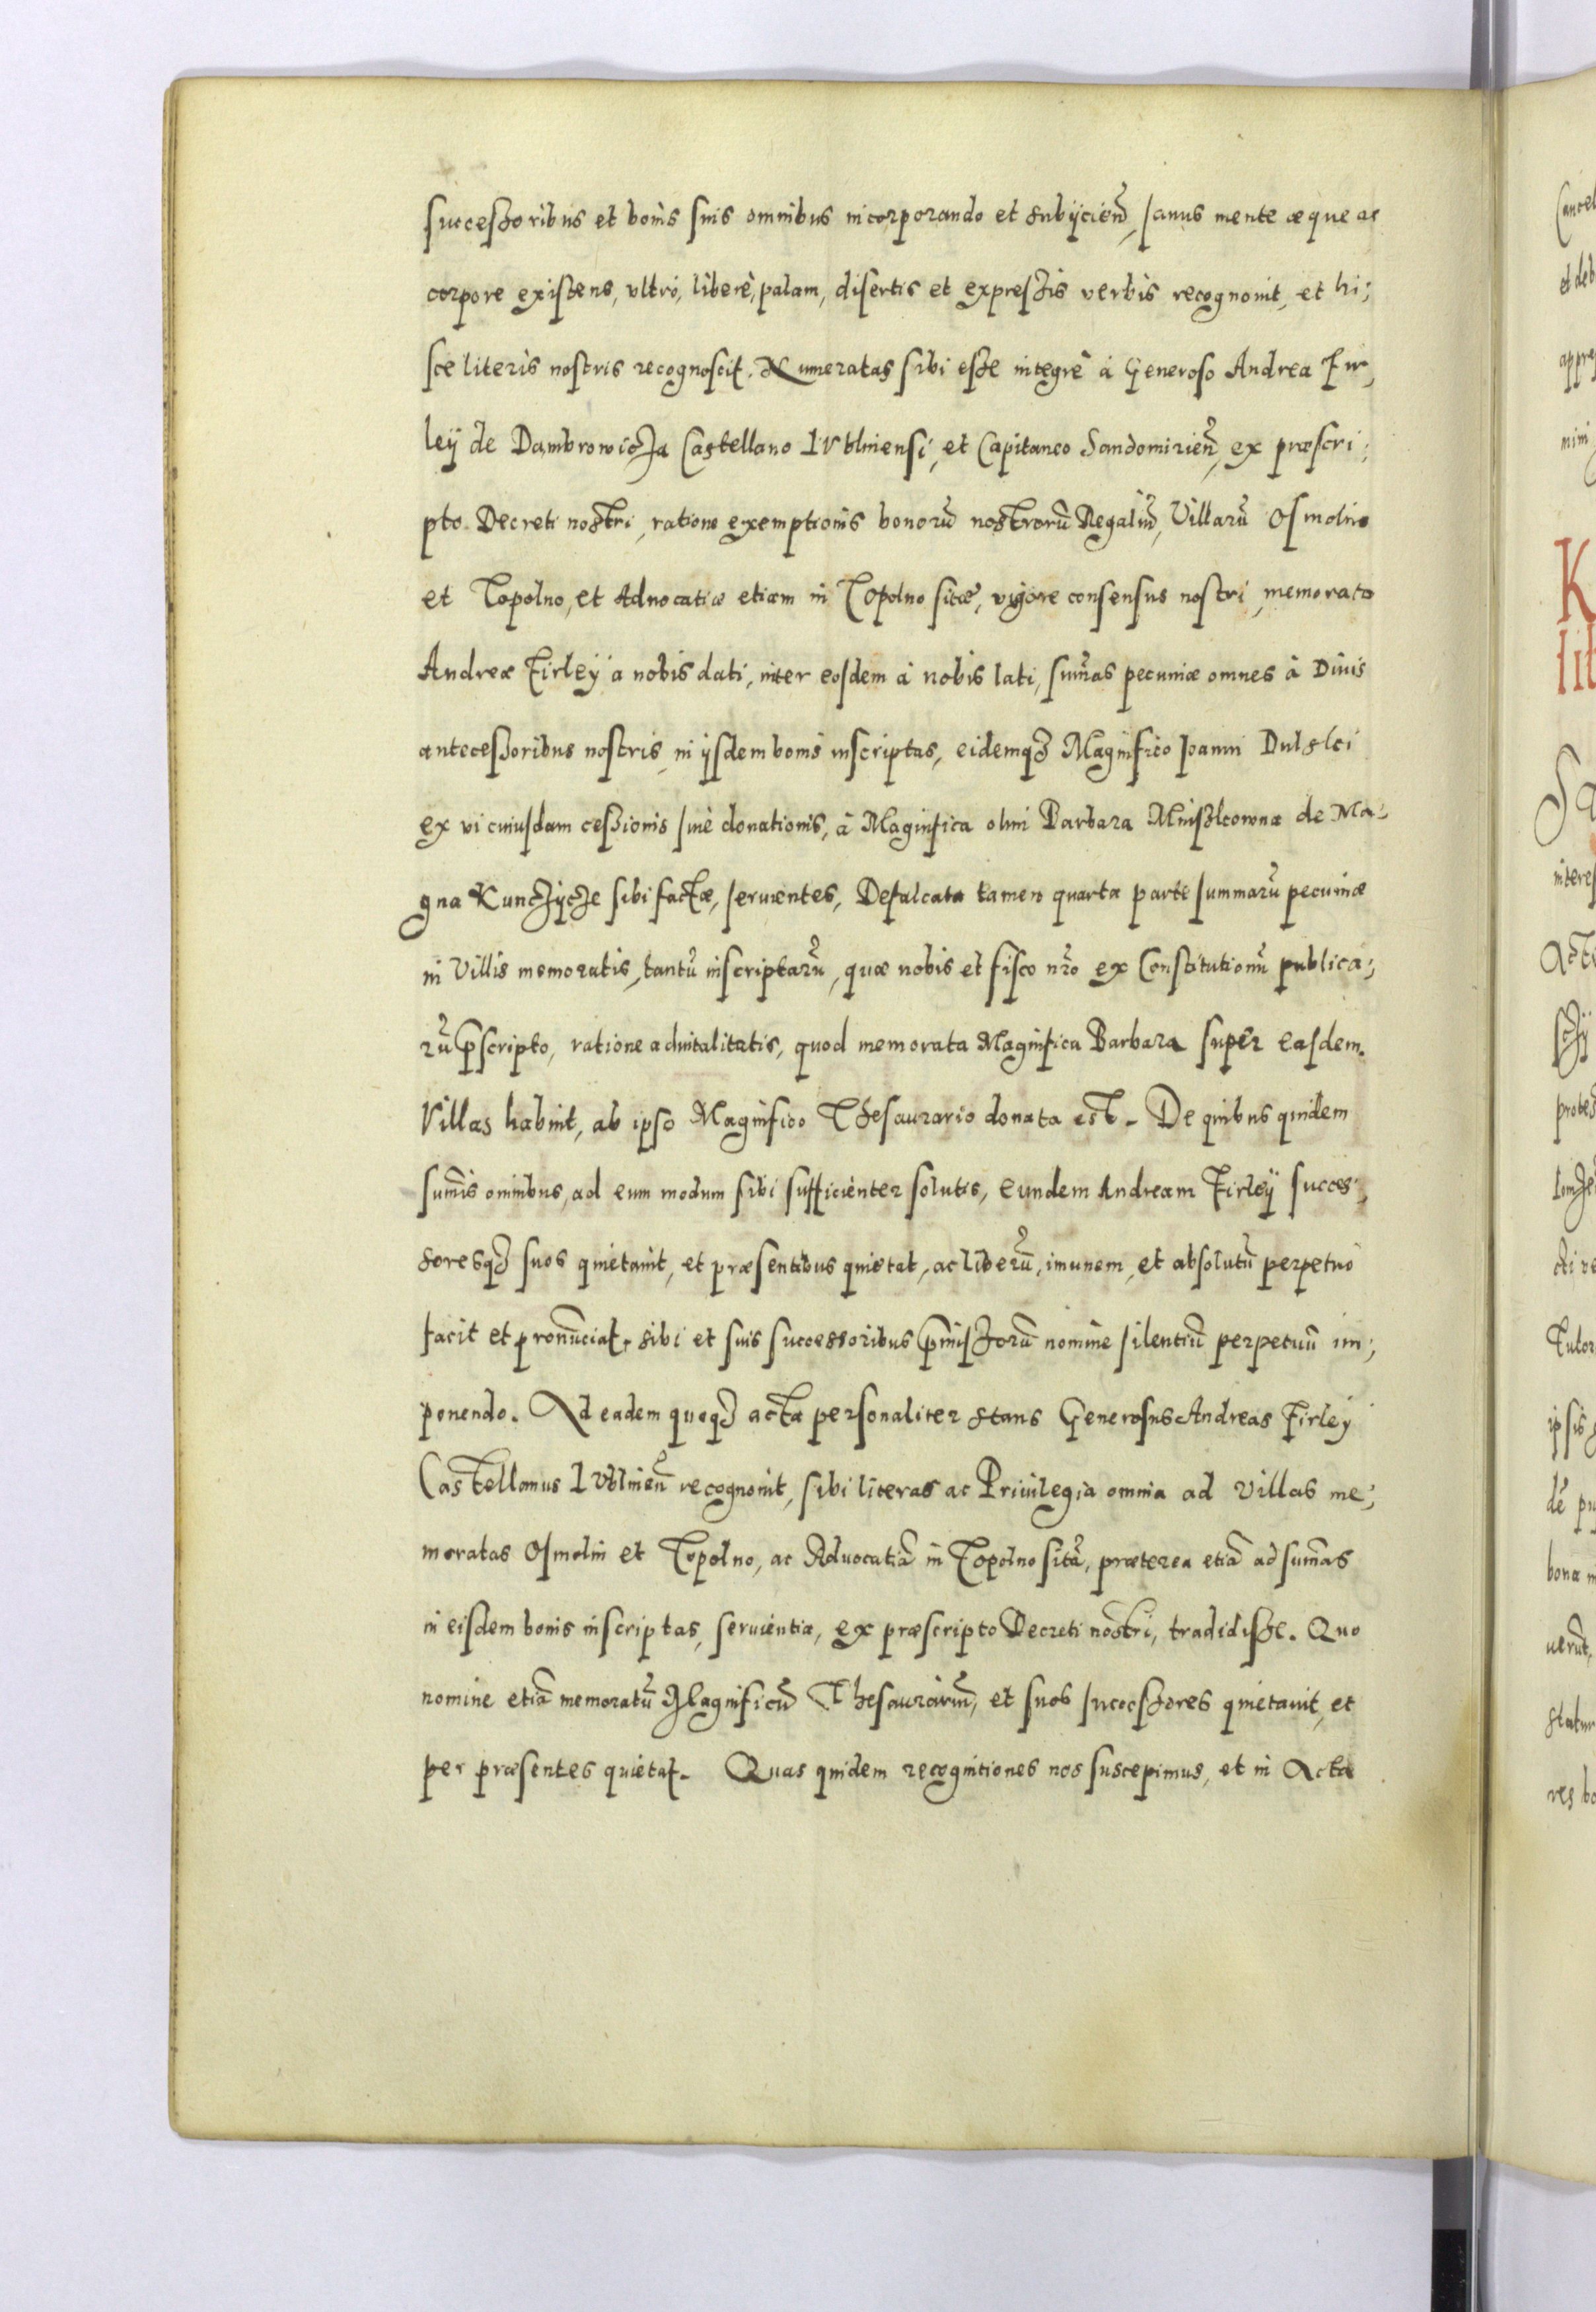 successoribus et bonis suis omnibus incorporando et subijcien̄, sanus mente æque ac
corpore existens, vltrò, liberè, palam, disertis et expressis verbis recognouit, et hi;
sce literis nostris recognoscit. Numeratas sibi esse integrè à Generoso Andrea Fir,
leÿ de Dambrowicza Castellano Lublinensi, et Capitaneo Sandomirien̄, ex præscri;
pto Decreti nostri, ratione exemptionis bonorū nostrorū Regaliū, Villarū Osmolin
et Topolno, et Aduocatiæ etiam in Topolno sitæ, vigore consensus nostri, memorato
Andreæ Firleÿ a nobis dati, inter eosdem à nobis lati, sum̄as pecuniæ omnes à Diuis
antecessoribus nostris, in ijsdem bonis inscriptas, eidemq3 Magnifico Joanni Dulski
ex vi cuiusdam cessionis siuè donationis, à Magnifica olim Barbara Mniszkowna de Ma;
gna Kunczÿcze sibi factæ, seruientes, Defalcata tamen quarta parte summarū pecuniæ
in Villis memoratis, tantū inscriptarū, quæ nobis et fisco nr̄o ex Constitutionū publica;
rū p̄scripto, ratione aduitalitatis, quod memorata Magnifica Barbara super easdem
Villas habuit, ab ipso Magnifico Thesaurario donata est. De quibus quidem
sum̄is omnibus, ad eum modum sibi sufficienter solutis, eundem Andream Firleÿ succes;
soresq3 suos quietauit, et præsentibus quietat, ac liberū, imunem, et absolutū perpetuò
facit et pronūciat, sibi et suis successoribus p̄missorū nomine silentiū perpetuū im;
ponendo. Ad eadem quoq3 acta personaliter stans Generosus Andreas Firleÿ
Castellanus Lublinen̄ recognouit, sibi literas ac Priuilegia omnia ad Villas me;
moratas Osmolin et Topolno, ac Aduocatiā in Topolno sitā, præterea etiā ad sum̄as
in eisdem bonis inscriptas, seruientia, ex præscripto Decreti nostri, tradidisse. Quo
nomine etiā memoratū Magnificū Thesaurariū, et suos successores quietauit, et
per præsentes quietat. Quas quidem recognitiones nos suscepimus, et in Acta